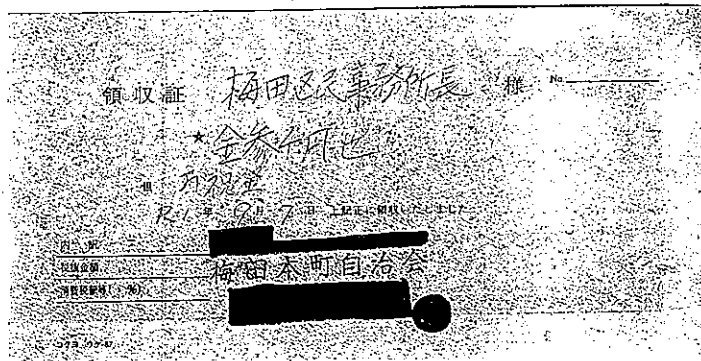 領収証 梅田区民事務所長 様 No.
★ 金参千円也
但 御祝金
R1年 9月 7日 上記正に領収いたしました
内訳
税抜金額
消費税額等( %)
梅田本町自治会
コクヨ ウケ-67